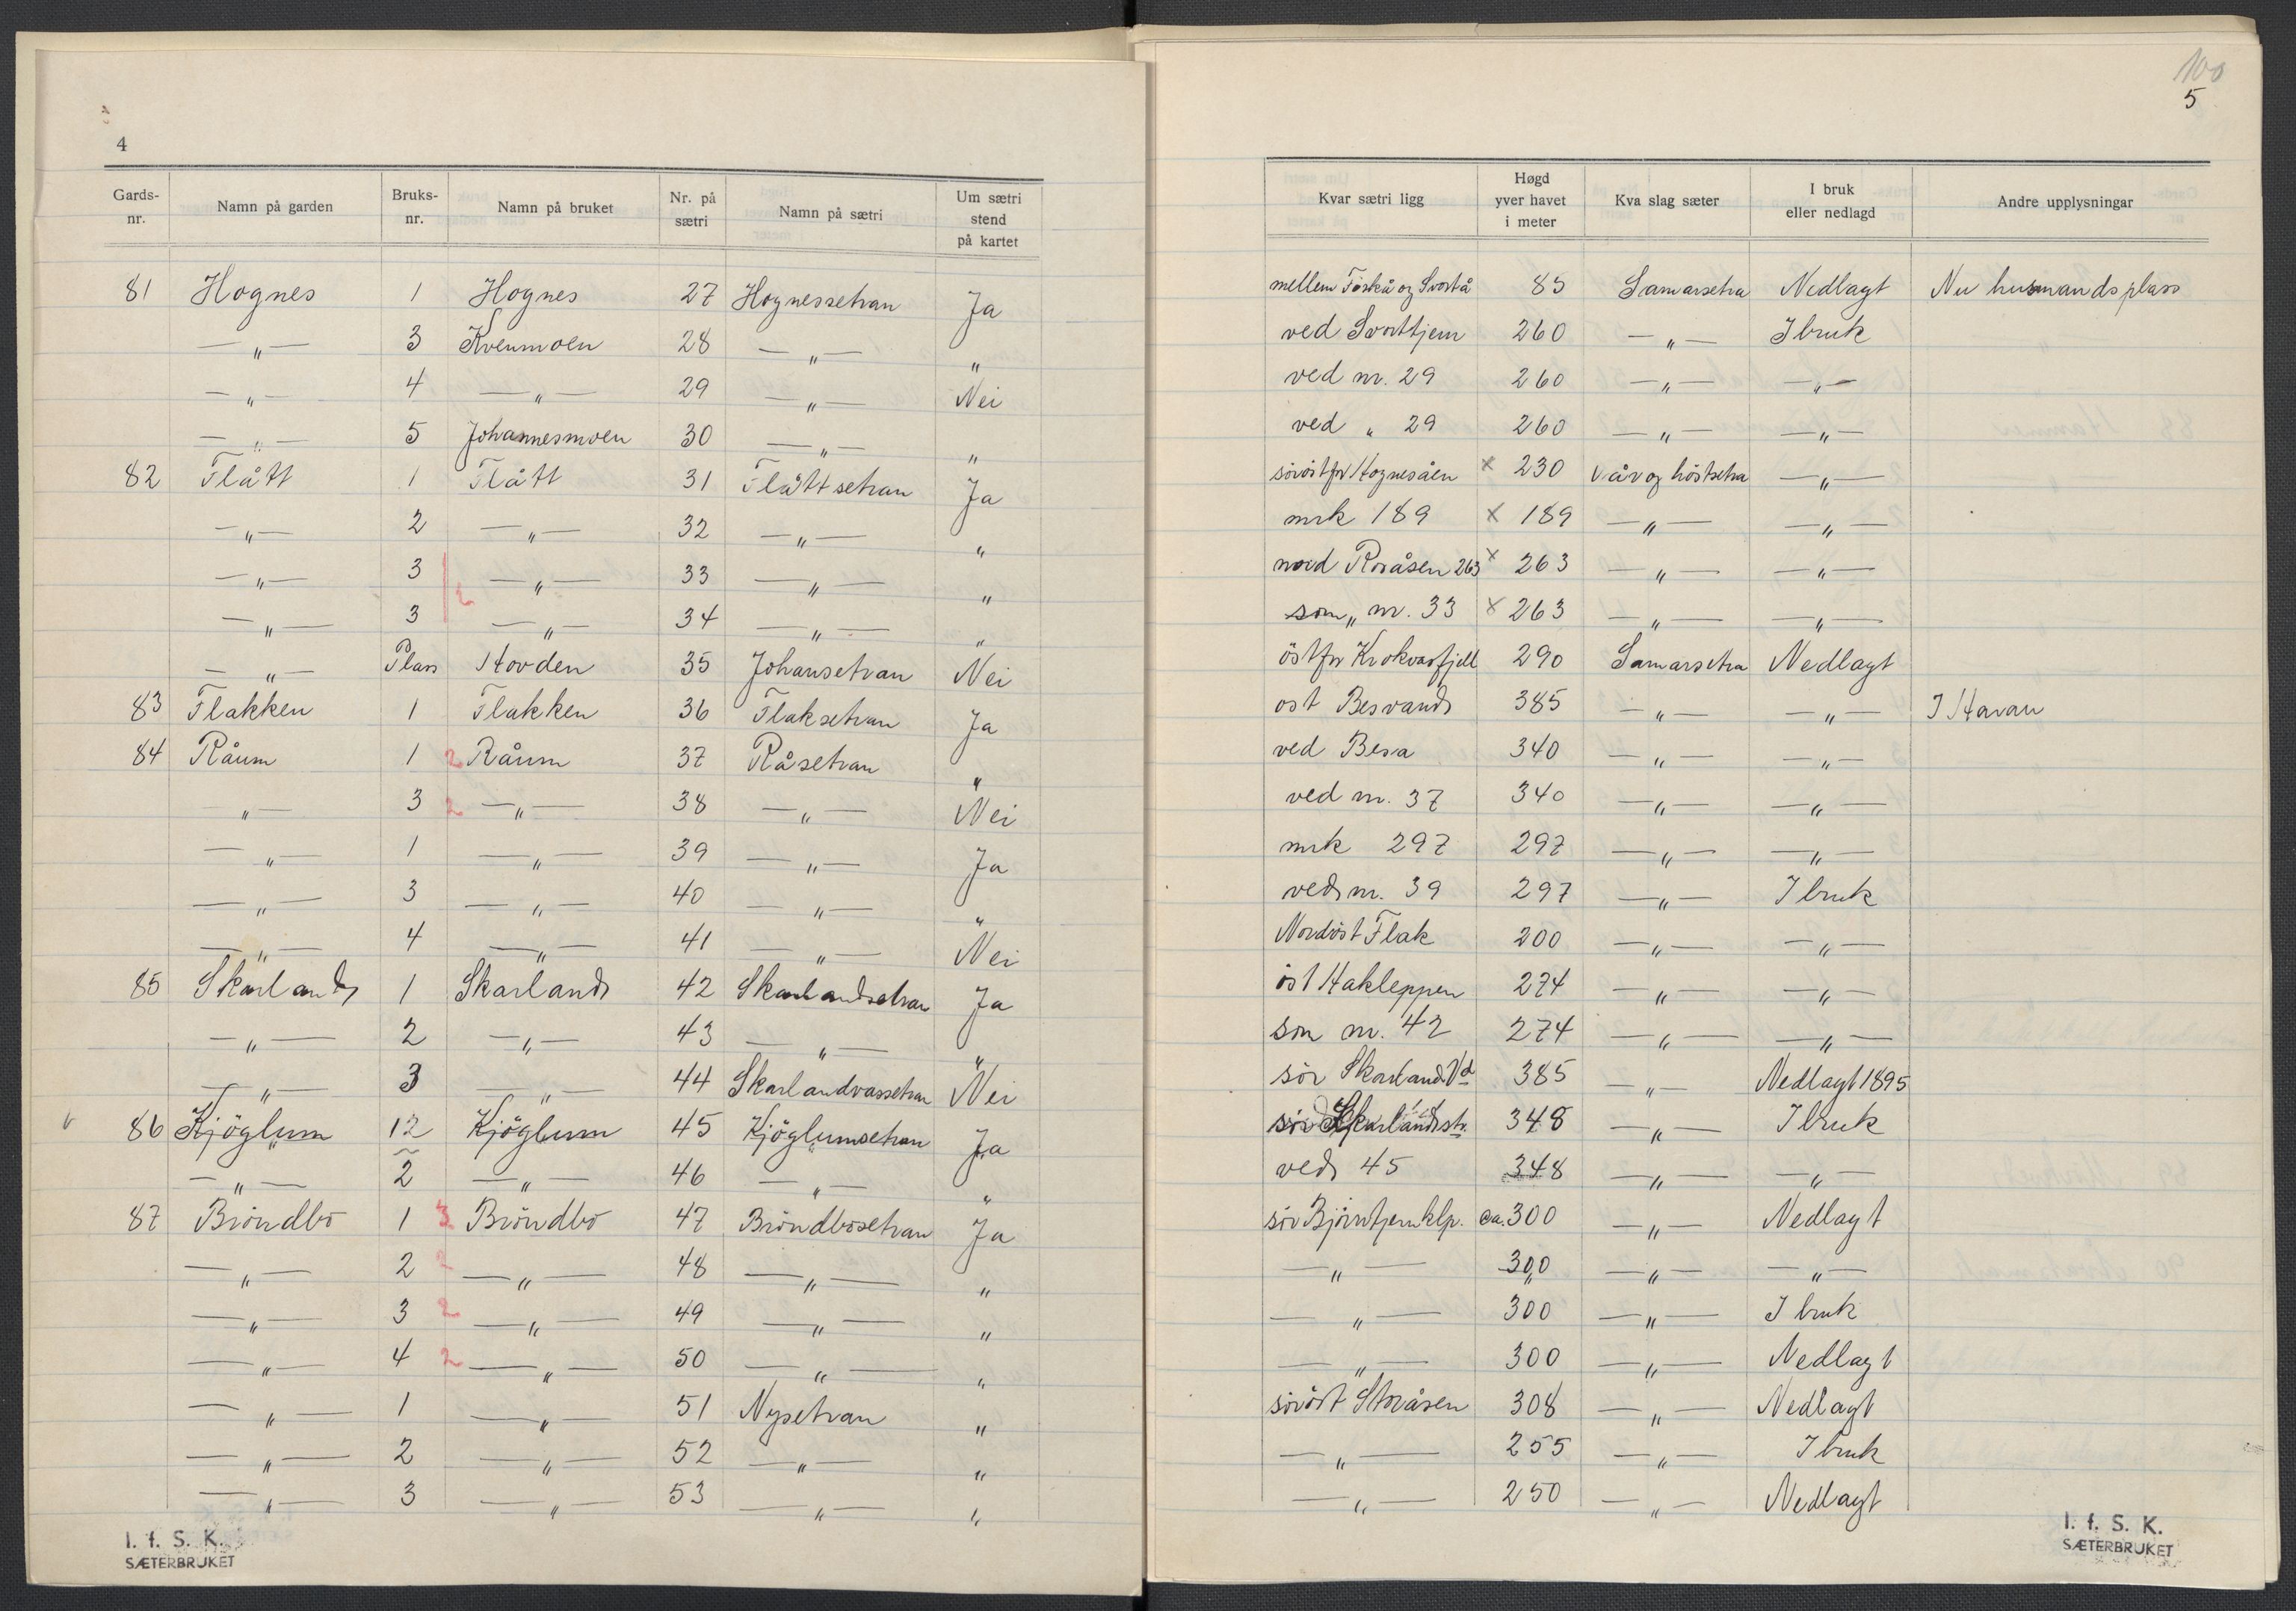 4
Gards-nr. Namn på garden Bruks-nr. Namn på bruket Nr. på sætri Namn på sætri Um sætri stend på kartet
81 Hognes 1 Hognes 27 Hognessetran Ja
—„— 3 Kvenmoen 28 —„— „
—„— 4 —„— 29 —„— Nei
—„— 5 Johannesmoen 30 —„— „
82 Flått 1 Flått 31 Flåttsetran Ja
—„— 2 —„— 32 —„— „
—„— 3 —„— 33 —„— „
2
—„— 3 —„— 34 —„— „
—„— Plass Hovden 35 Johansetran Nei
83 Flakken 1 Flakken 36 Flaksetran Ja
84 Råum 1 2 Råum 37 Råsetran „
„— 3 2 —„— 38 —„— Nei
—„— 1 —„— 39 —„— Ja
—„— 3 —„— 40 —„— „
—„— 4 —„— 41 —„— Nei
85 Skarland 1 Skarland 42 Skarlandsetran Ja
—„— 2 —„— 43 —„— „
—„— 3 —„— 44 Skarlandvassetran Nei
86 Kjöglum 12 Kjöglum 45 Kjöglumsetran Ja
—„— 2 —„— 46 —„— „
87 Bröndbo 1 3 Bröndbo 47 Bröndbosetran Ja
—„— 2 2 —„— 48 —„— „
—„— 3 2 —„— 49 —„— „
—„— 4 2 —„— 50 —„— „
—„— 1 —„— 51 Nysetran „
—„— 2 —„— 52 —„— „
—„— 3 —„— 53 —„— „
I. f. S. K.
SÆTERBRUKET
100
5
Kvar sætri ligg Høgd yver havet i meter Kva slag sæter I bruk eller nedlagd Andre upplysningar
mellem Foskå og Svortå 85 Samarsetra Nedlagt Nu husmandsplass
ved Svorttjern 260 —„— I bruk
ved nr. 29 260 —„— —„—
ved „ 29 260 —„— —„—
söröst for Hognesåen × 230 vår og höstsetra —„—
mrk 189 × 189 —„— —„—
nord Roråsen 263 × 263 —„— —„—
som „ nr. 33 × 263 —„— —„—
öst for Krokvasfjell 290 Samarsetra Nedlagt
ost Besvand 385 —„— —„— I Haran
ved Besa 340 —„— —„—
ved nr. 37 340 —„— —„—
mrk 297 297 —„— —„—
ved nr. 39 297 —„— I bruk
Nordöst Flak 200 —„— —„—
öst Hakleppen 274 —„— —„—
som nr. 42 274 —„— —„—
sör Skarland Vd 385 —„— Nedlagt 1895
sör Skarlandstr. 348 —„— I bruk
ved 45 348 —„— —„—
sör Björntjernklp. ca. 300 —„— Nedlagt
—„— 300 —„— —„—
—„— 300 —„— I bruk
—„— 300 —„— Nedlagt
söröst Storåsen 308 —„— Nedlagt
—„— 255 —„— I bruk
—„— 250 —„— Nedlagt
I. f. S. K.
SÆTERBRUKET